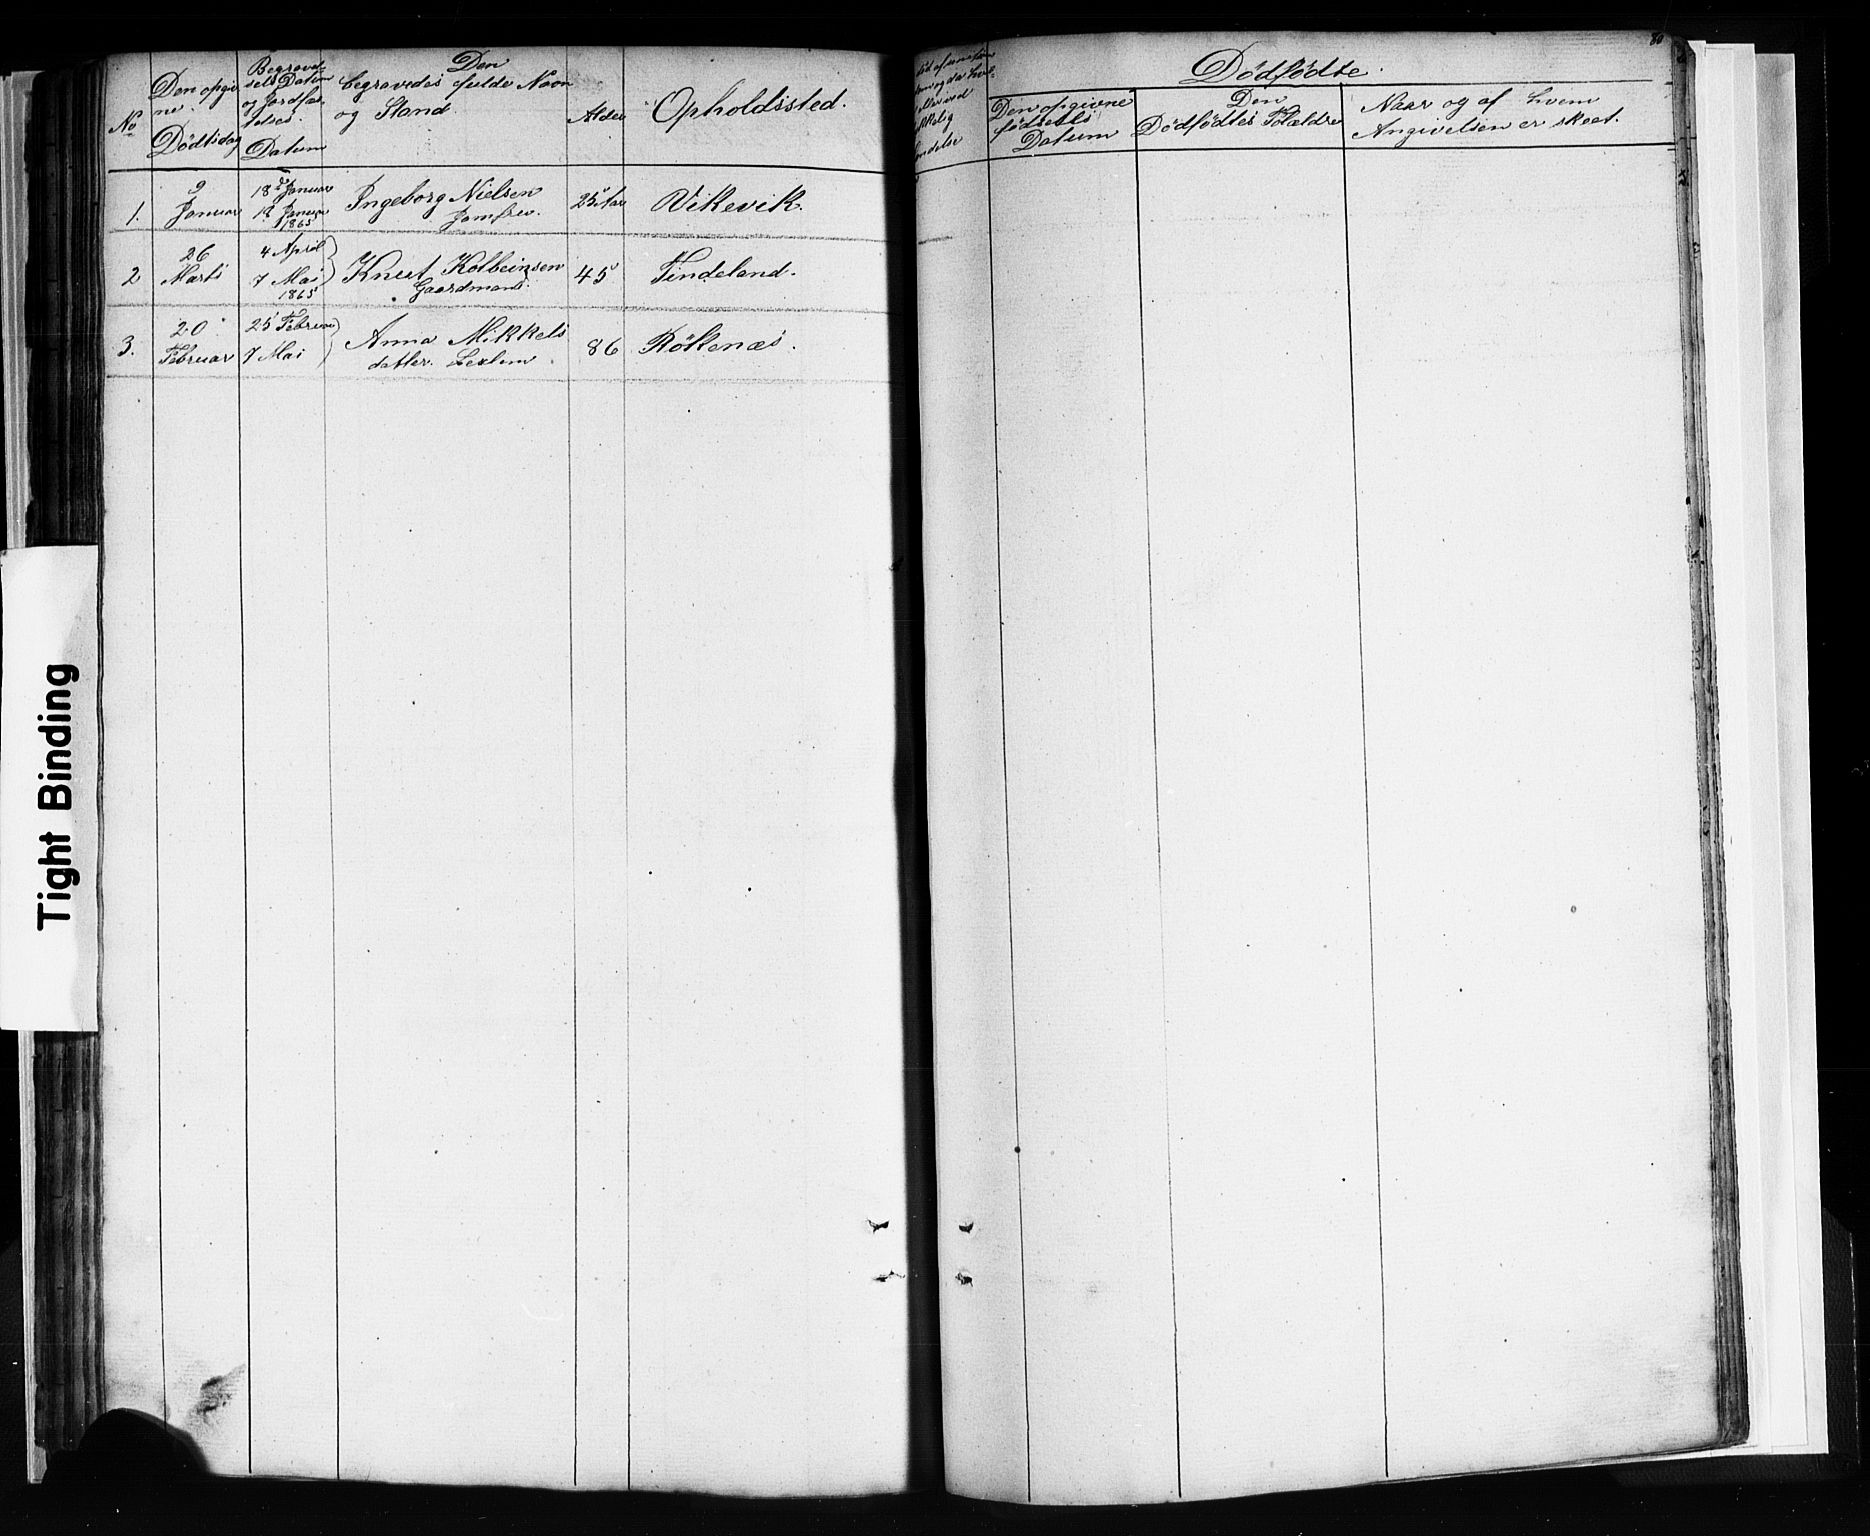 80
No
Den opgi
ne
Dödtsdag
Begravel-
sels Datum
og Jordfæs
telses
Datum
Den
begravedes fulde Navn
og Stand
Alder
Opholdssted.
Dödfødte.
Den opgivne
födsels
Datum
Den
Dödfødtes Forældre
Naar og af hvem
Angivelsen er skeet.
1.
9
Januar
18de Januar
18 Januar
1865
Ingeborg Nielsen
Jomfru.
25 Aar
Vikevik.
2
26
Marts
4 April
7 Mai
1865
Knut Kolbeinsen
Gaardmand.
45
Tindeland.
3.
20
Februar
25 Februar
7 Mai
Anna Mikkels
datter.
86
Rökenæs.
Tight Binding